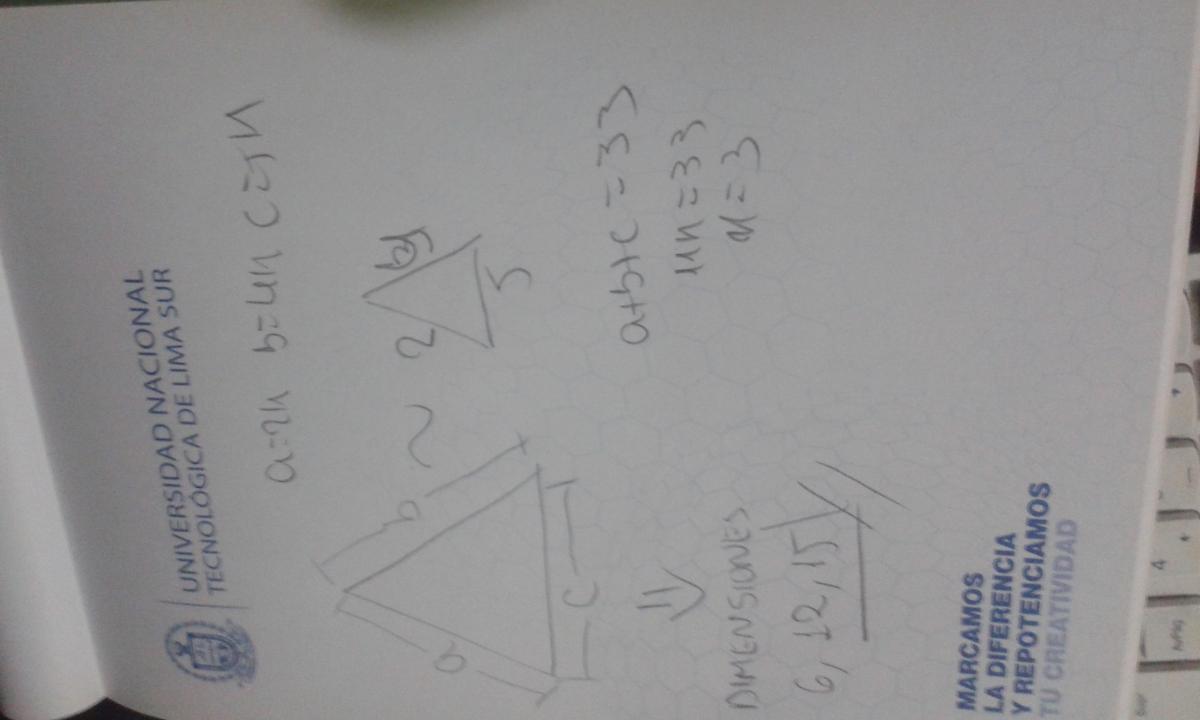 UNIVERSIDAD NACIONAL
TECNOLÓGICA DE LIMA SUR
a=2n b=4n c=5n
a
b
c
~
2
4
5
a+b+c=33
11n=33
n=3
⇒
DIMENSIONES
6, 12, 15
MARCAMOS
LA DIFERENCIA
Y REPOTENCIAMOS
TU CREATIVIDAD
4